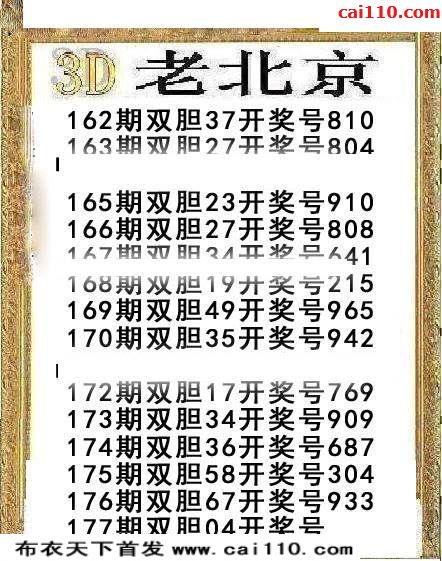 cai110.com
3D 老北京
162期双胆37开奖号810
163期双胆27开奖号804
165期双胆23开奖号910
166期双胆27开奖号808
167期双胆34开奖号641
168期双胆19开奖号215
169期双胆49开奖号965
170期双胆35开奖号942
172期双胆17开奖号769
173期双胆34开奖号909
174期双胆36开奖号687
175期双胆58开奖号304
176期双胆67开奖号933
177期双胆04开奖号
布衣天下首发 www.cai110.com